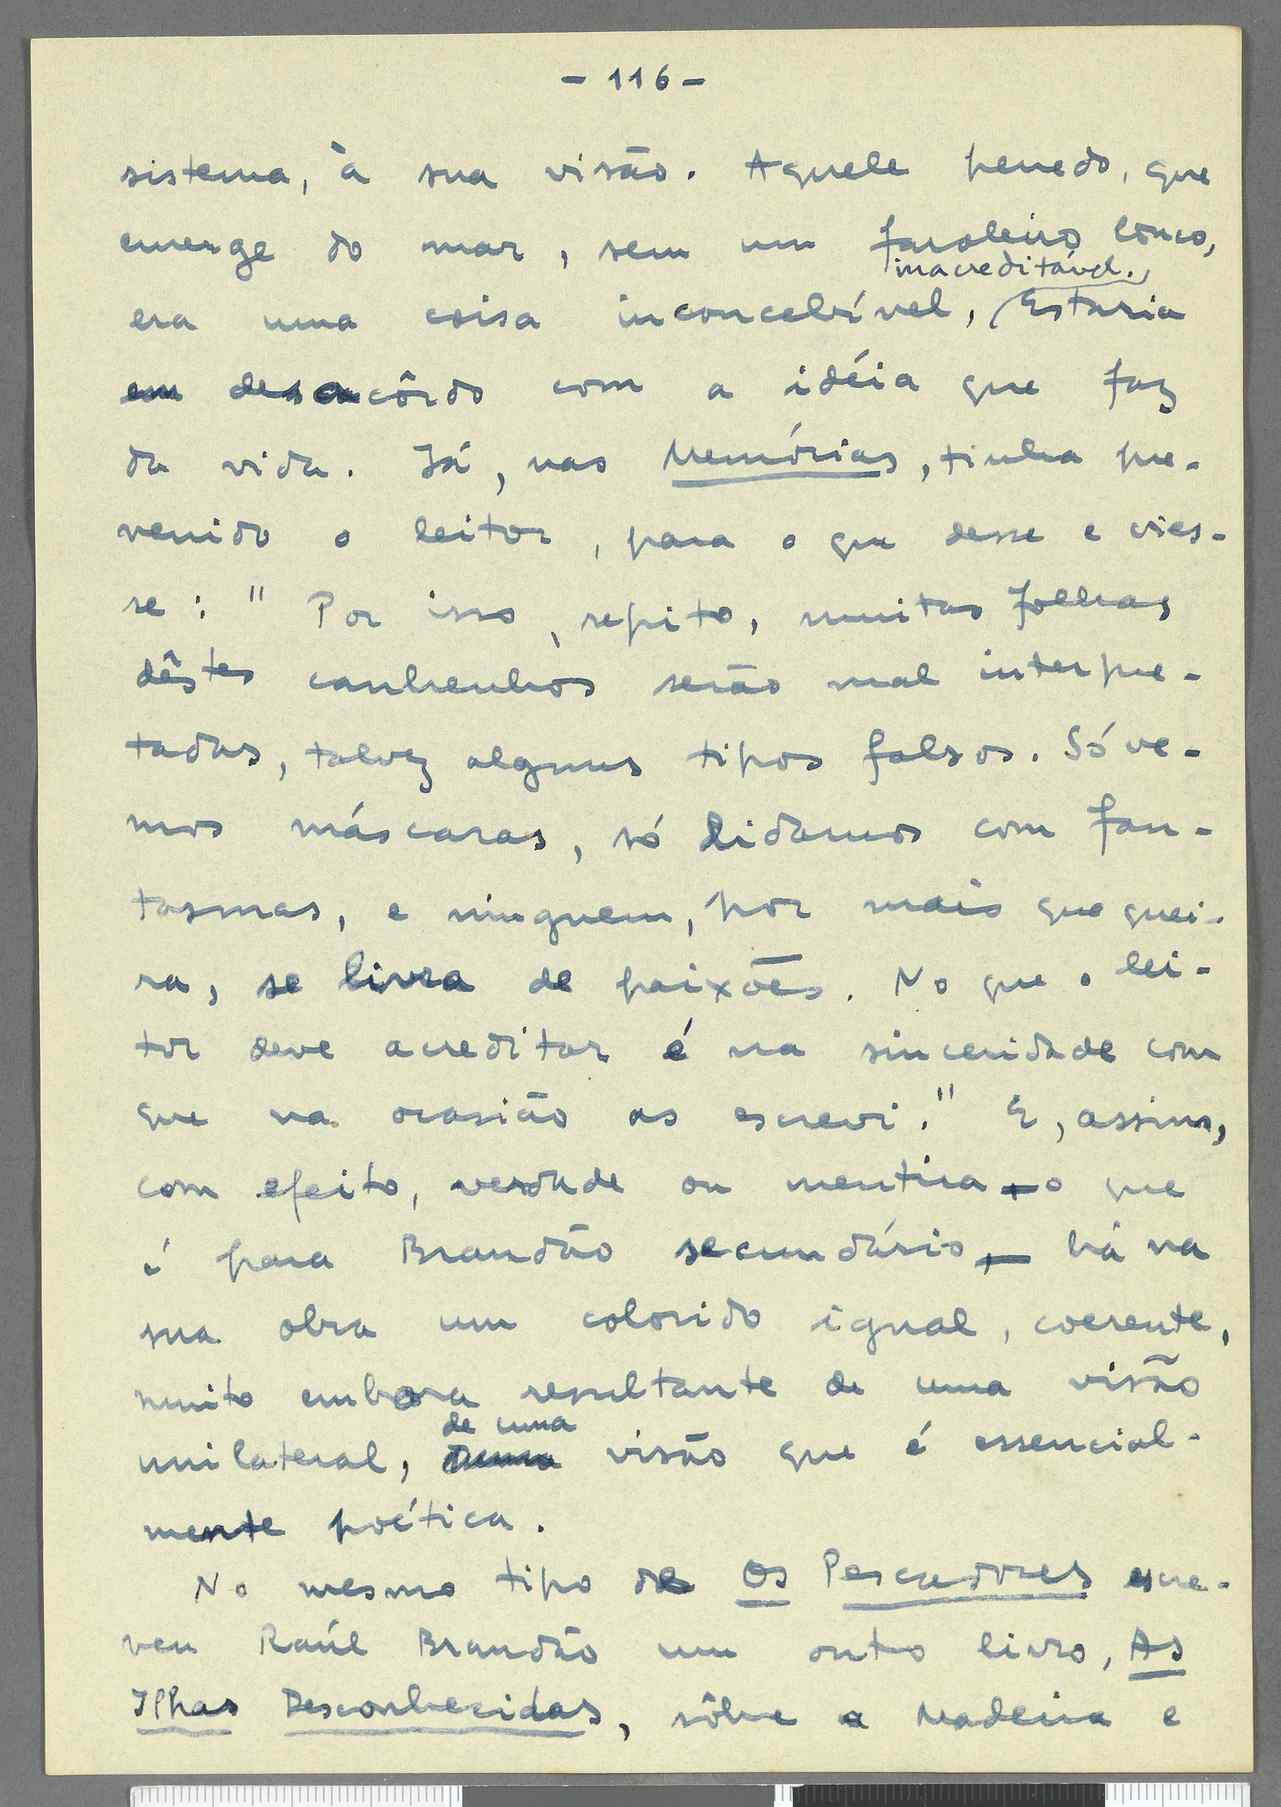 - 116 -
sistema, à sua visão. Aquele penedo, que
emerge do mar, sem um faroleiro louco,
inacreditável.
era uma coisa inconcebível, Estaria
em desacôrdo com a idéia que faz
da vida. Já, nas Memórias, tinha pre-
venido o leitor, para o que desse e vies-
se: "Por isso, repito, muitas folhas
dêstes canhenhos serão mal interpre-
tadas, talvez alguns tipos falsos. Só ve-
mos máscaras, só lidamos com fan-
tasmas, e ninguem, por mais que quei-
ra, se livra de paixões. No que o lei-
tor deve acreditar é na sinceridade com
que na ocasião as escrevi." E, assim,
com efeito, verdade ou mentira - o que
é para Brandão secundário, - há na
sua obra um colorido igual, coerente,
muito embora resultante de uma visão
de uma
unilateral, visão que é essencial-
mente poética.
No mesmo tipo de Os Pescadores escre-
veu Raúl Brandão um outro livro, As
Ilhas Desconhecidas, sôbre a Madeira e